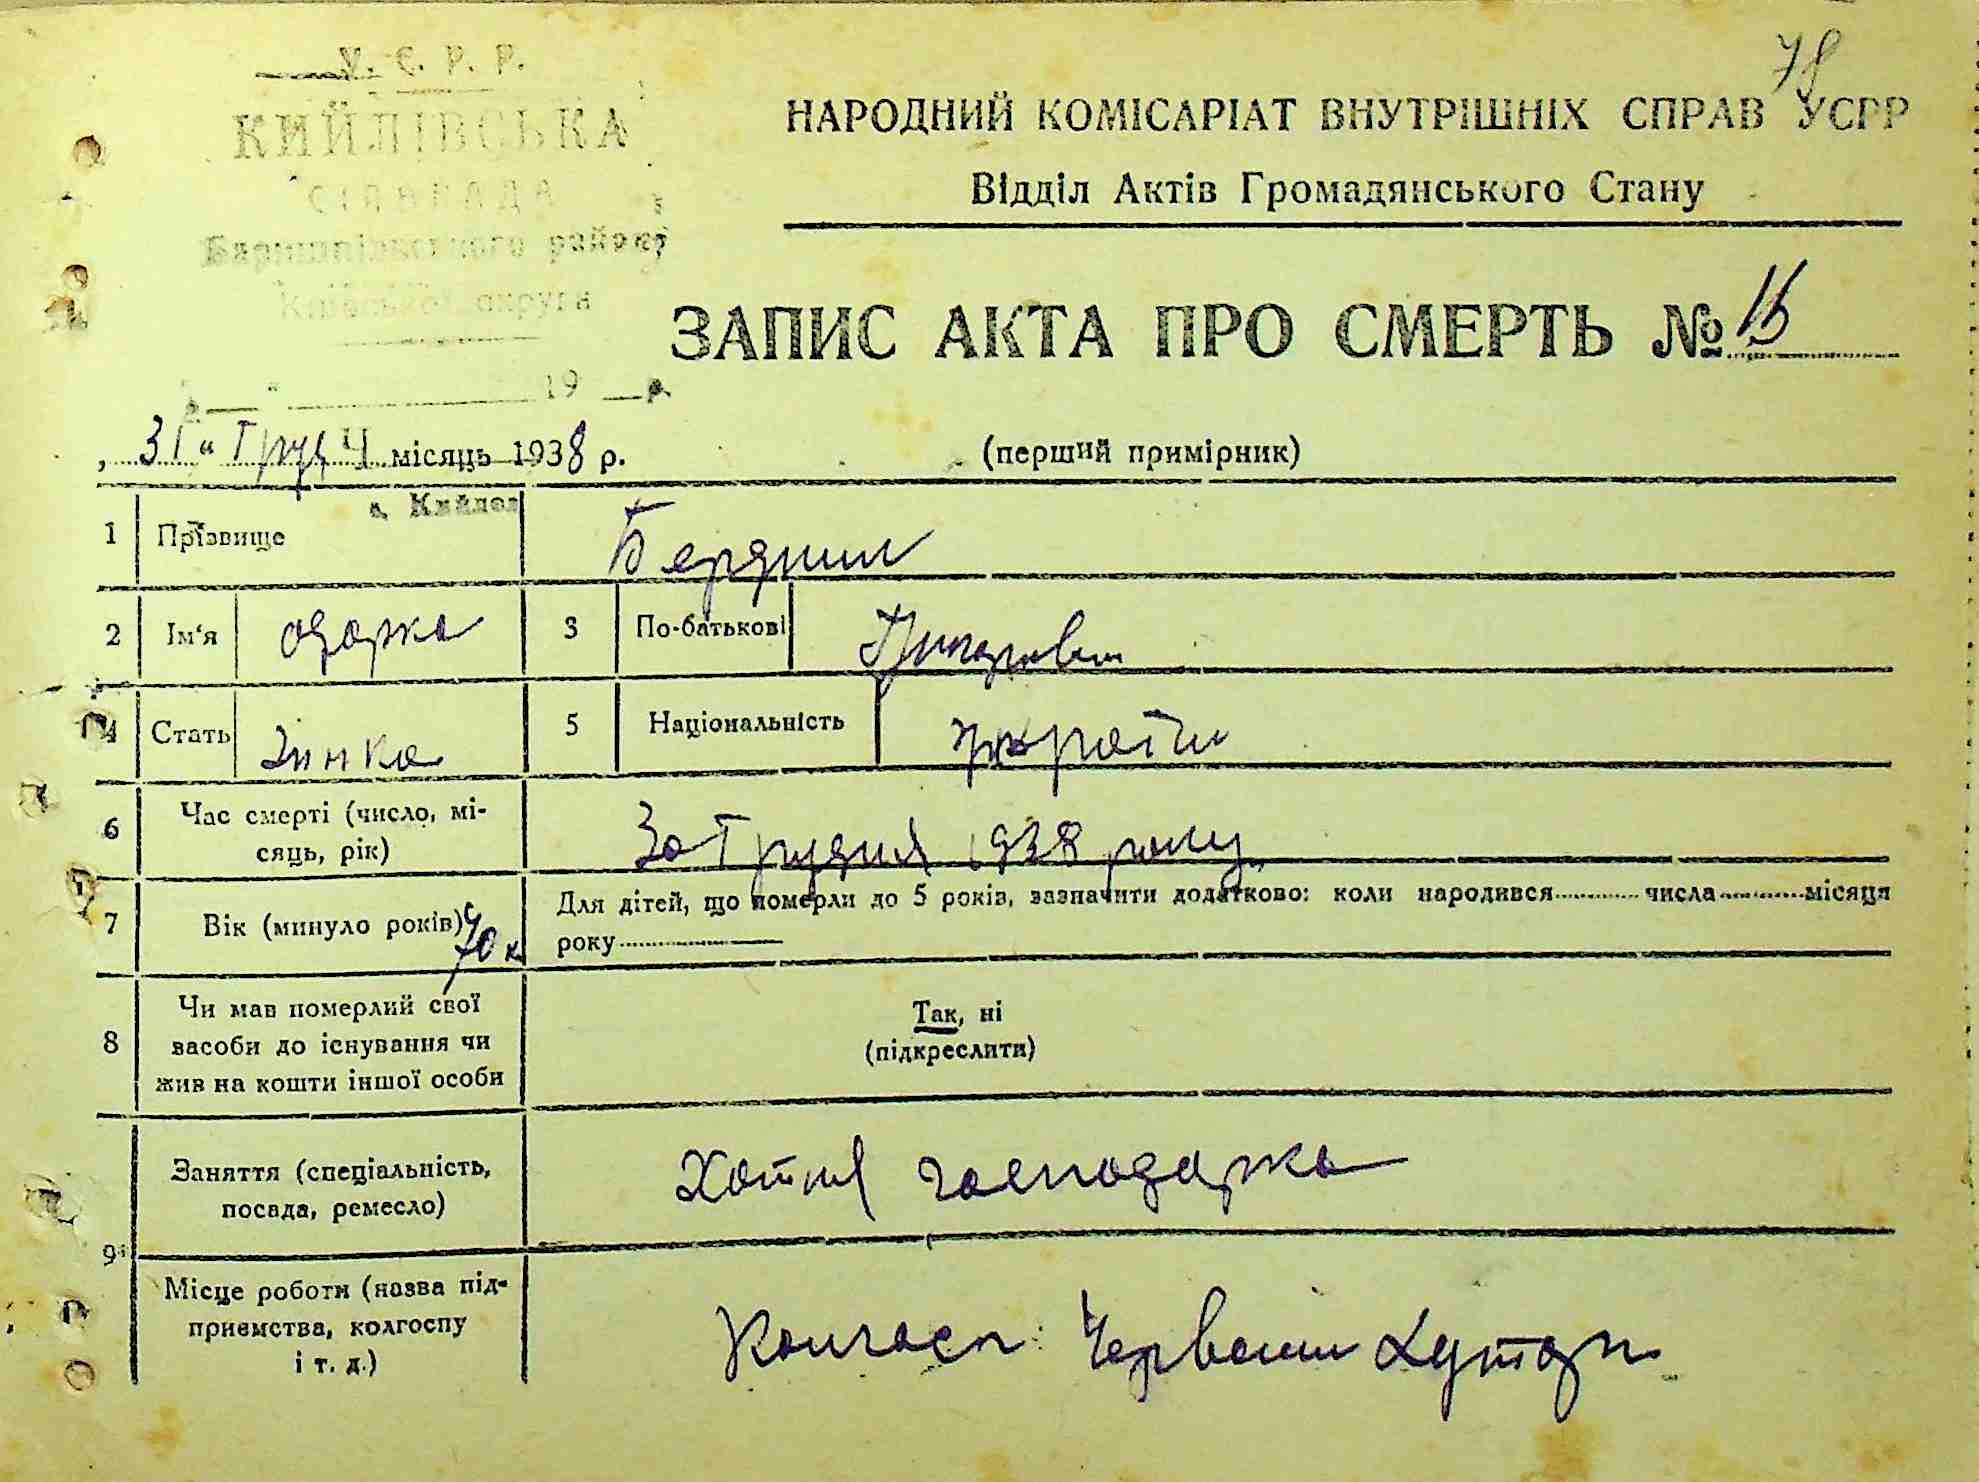 У. С. Р. Р.
КИЙЛІВСЬКА
СІЛЬРАДА
Баришпільського району
Київської округи
19 р.
78
НАРОДНИЙ КОМІСАРІАТ ВНУТРІШНІХ СПРАВ УСРР
Відділ Актів Громадянського Стану
ЗАПИС АКТА ПРО СМЕРТЬ № 15
„31“ Груд місяць 1938 р.
(перший примірник)
с. Кийлов
1 Прізвище
2 Ім‘я одарка 3 По-батькові
4 Стать Жинка 5 Національність україн
6 Час смерті (число, мі-
сяць, рік) 30 Грудня 1938 року
7 Вік (минуло років) 70
Для дітей, що померли до 5 років, зазначити додатково: коли народився числа місяця
року
8 Чи мав померлий свої
засоби до існування чи
жив на кошти іншої особи
Так, ні
(підкреслити)
9 Заняття (спеціальність,
посада, ремесло) Хатня господарка
Місце роботи (назва під-
приємства, колгоспу
і т. д.) Колгосп Червоний Хутор